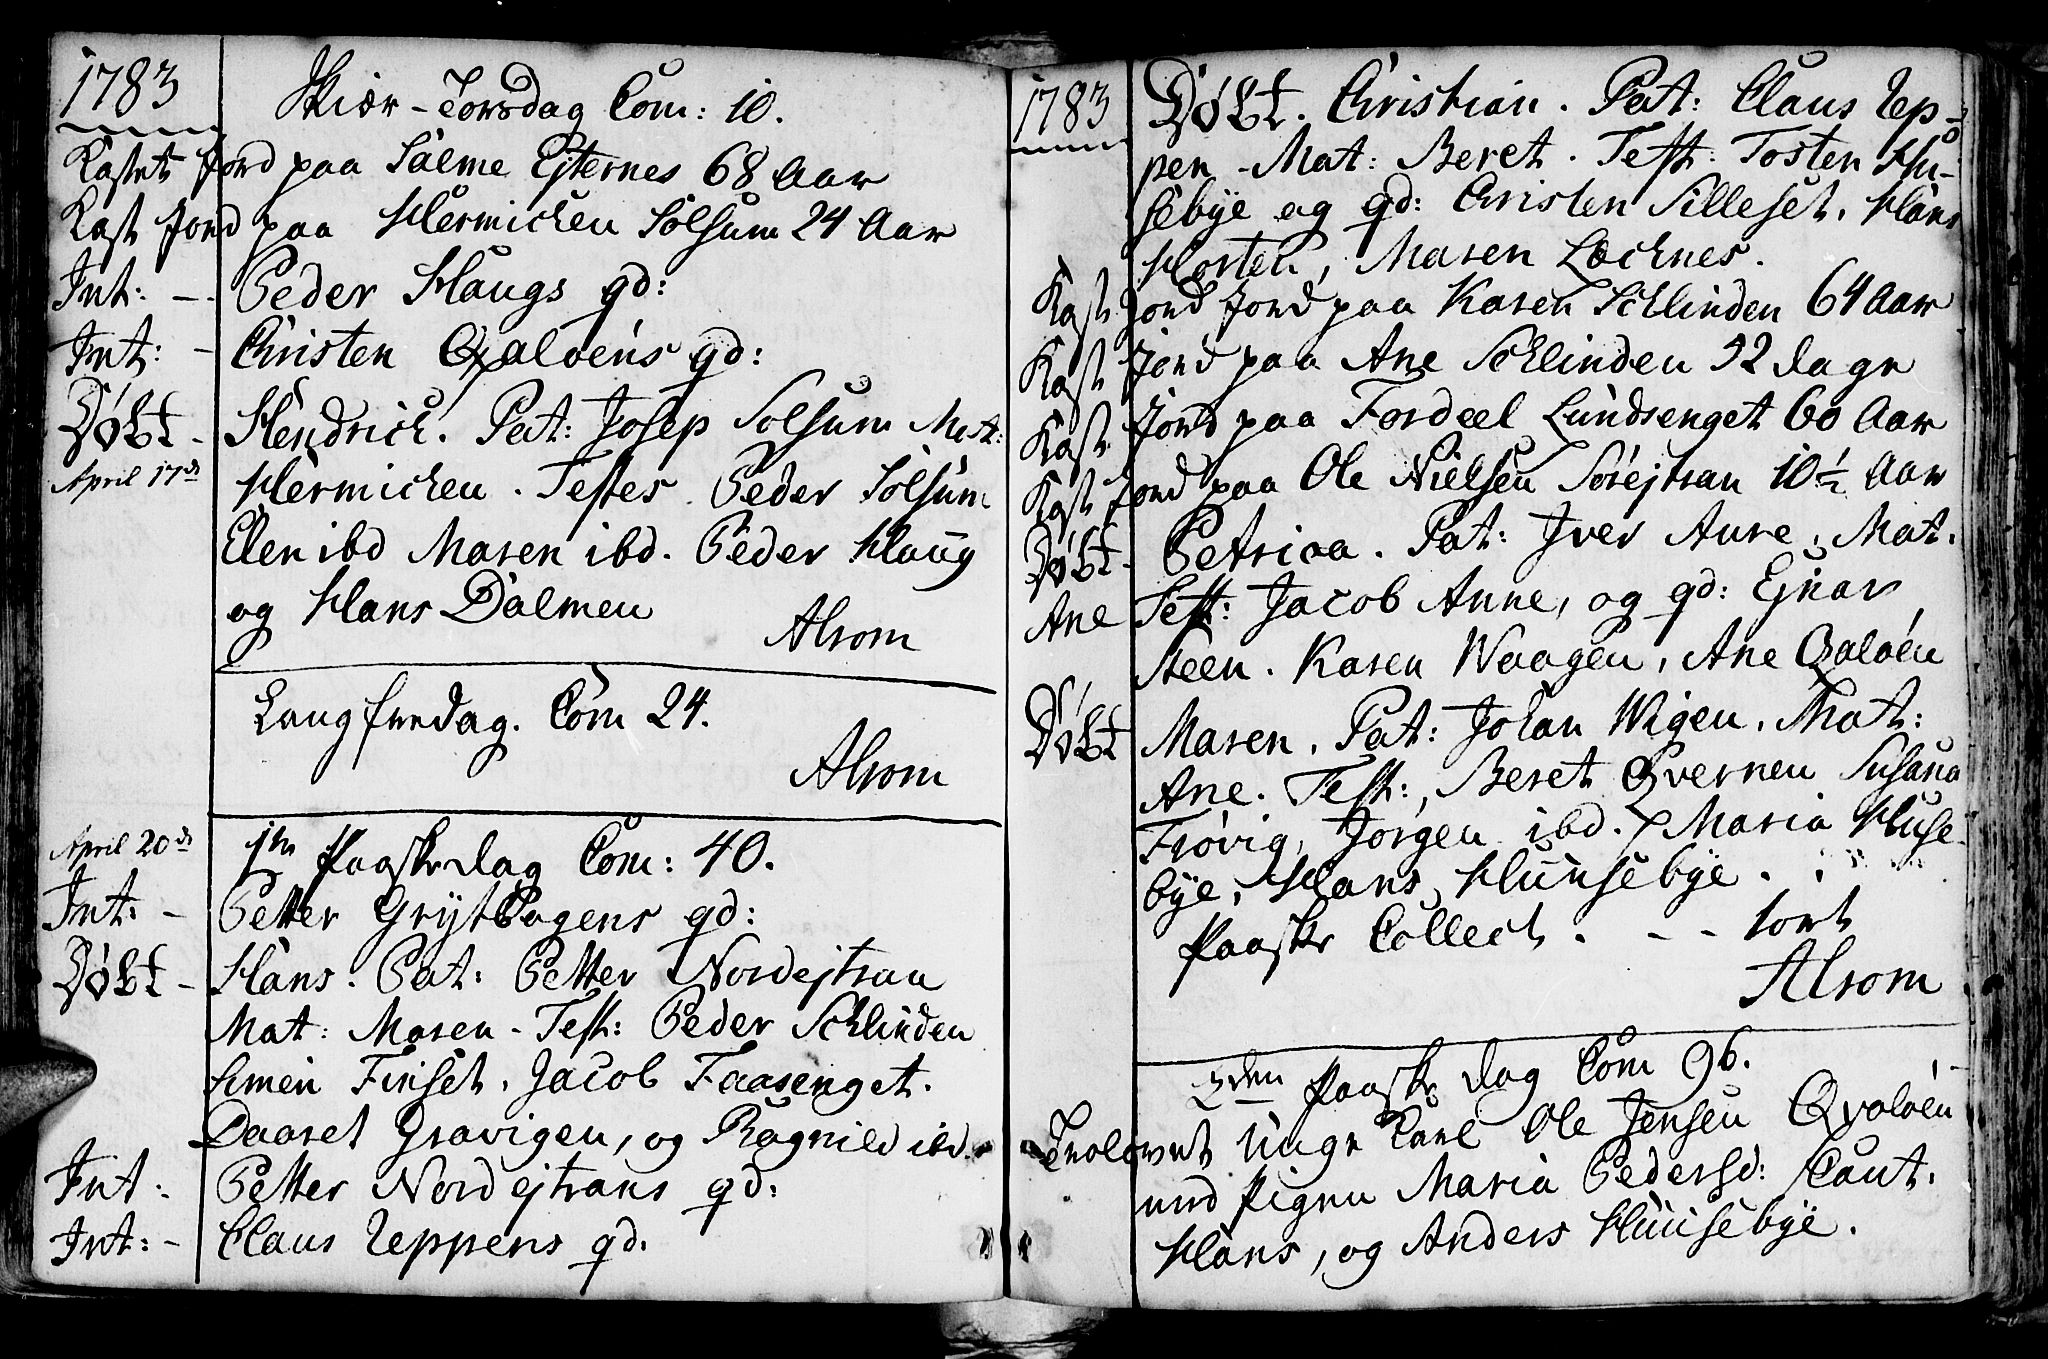 1783 Skiær-Torsdag Com: 10.
Kastet Jord paa Salme Ejternes 68 Aar
Kast Jord paa Hermichen Solsum 24 Aar
Int: - Peder Haugs qd:
Int: - Christen Qvaløens qd:
Døbt - Hendrich. Pat: Josep Solsum Mat:
April 17d Hermichen. Testes Peder Solsum
Elen ibd Maren ibd. Peder Haug
og Hans Dalmen
Alrom
Langfredag. Com 24.
Alrom
April 20d 1te Paaskedag Com: 40.
Int: - Petter Grytbagens qd:
Døbt - Hans. Pat: Petter Nordejtran
Mat: Maren - Test: Peder Schlinden
Simen Finset, Jacob Faasenget.
Daaret Gravigen, og Ragnild ibd.
Int: Petter Nordejtrans qd:
Int: - Claus Reppens qd.
1783 Døbt. Christian. Pat: Claus Rep-
pen - Mat: Beret. Test: Tosten Hu-
sebye og qd: Christen Silleset, Hans
Horten, Maren Lochnes.
Kast Jord Jord paa Karen Schlinden 64 Aar
Kast Jord paa Ane Schlinden 32 dage
Kast Jord paa Fordeel Lundsenget 60 Aar
Kast Jord paa Ole Nielsen Sørejtran 10½ Aar
Døbt - Petrica. Pat: Iver Aure, Mat.
Ane Test: Jacob Aune, og qd: Ejnar
Steen. Karen Waagen, Ane Qvaløen
Døbt Maren, Pat: Johan Wigen, Mat:
Ane. Test:, Beret Qvernen Susana
Frøvig, Jørgen ibd. Maria Huse-
bye, Hans Huusebye.
Paaske Collect. - - 1ort
Alrom
2den Paaske dag Com 96.
Trolovet Unge Karl Ole Jensen Qvaløen
med Pigen Maria Pedersd: Caut.
Hans, og Anders Huusebye.